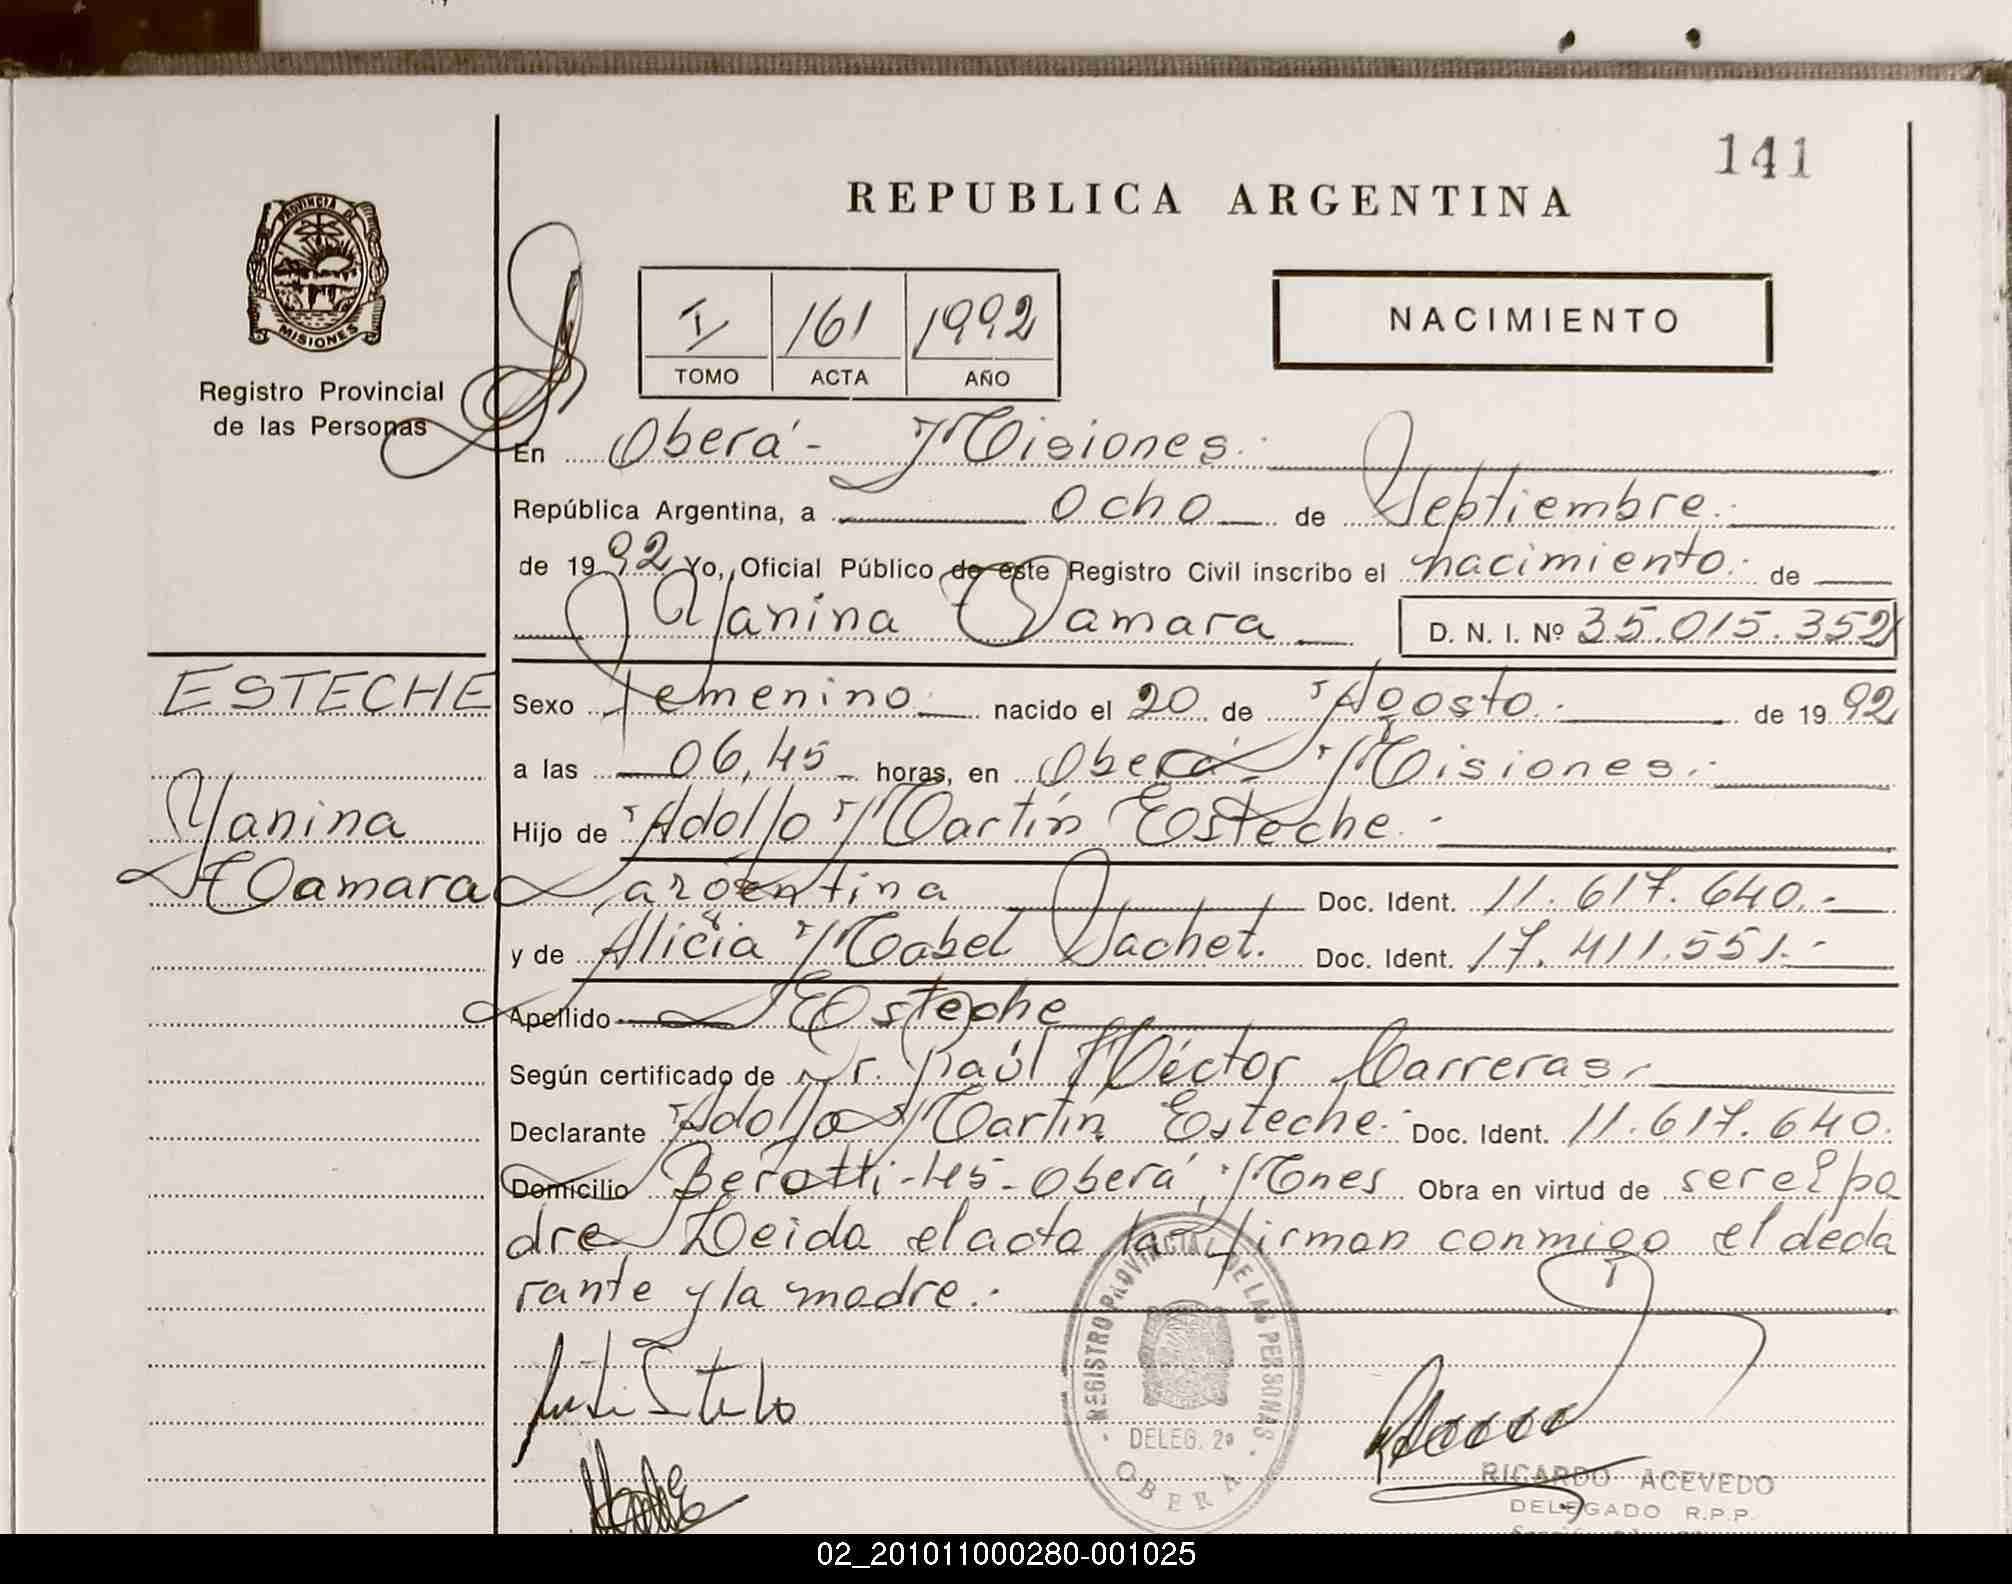 141
REPUBLICA ARGENTINA
PROVINCIA DE
MISIONES
Registro Provincial
de las Personas
I 161 1992
TOMO ACTA AÑO
NACIMIENTO
En Oberá - Misiones.
República Argentina, a ocho de Septiembre.
de 1992 Yo, Oficial Público de este Registro Civil inscribo el nacimiento. de
Yanina Tamara D. N. I. Nº 35.015.352
ESTECHE
Yanina
Tamara
Sexo femenino nacido el 20 de Agosto. de 1992
a las 06,45 horas, en Oberá - Misiones.
Hijo de Adolfo Martín Esteche.
argentina Doc. Ident. 11.617.640.-
y de Alicia Mabel Sachet. Doc. Ident. 17.411.551.-
Apellido Esteche
Según certificado de Dr. Raúl Héctor Carreras.
Declarante Adolfo Martín Esteche. Doc. Ident. 11.617.640.
Domicilio -45- Oberá, Mnes Obra en virtud de ser el pa
dre Leida el acta la firman conmigo el decla
rante y la madre.
REGISTRO PROVINCIAL DE LAS PERSONAS
DELEG. 2ª
OBERA
RICARDO ACEVEDO
DELEGADO R.P.P.
02_201011000280-001025